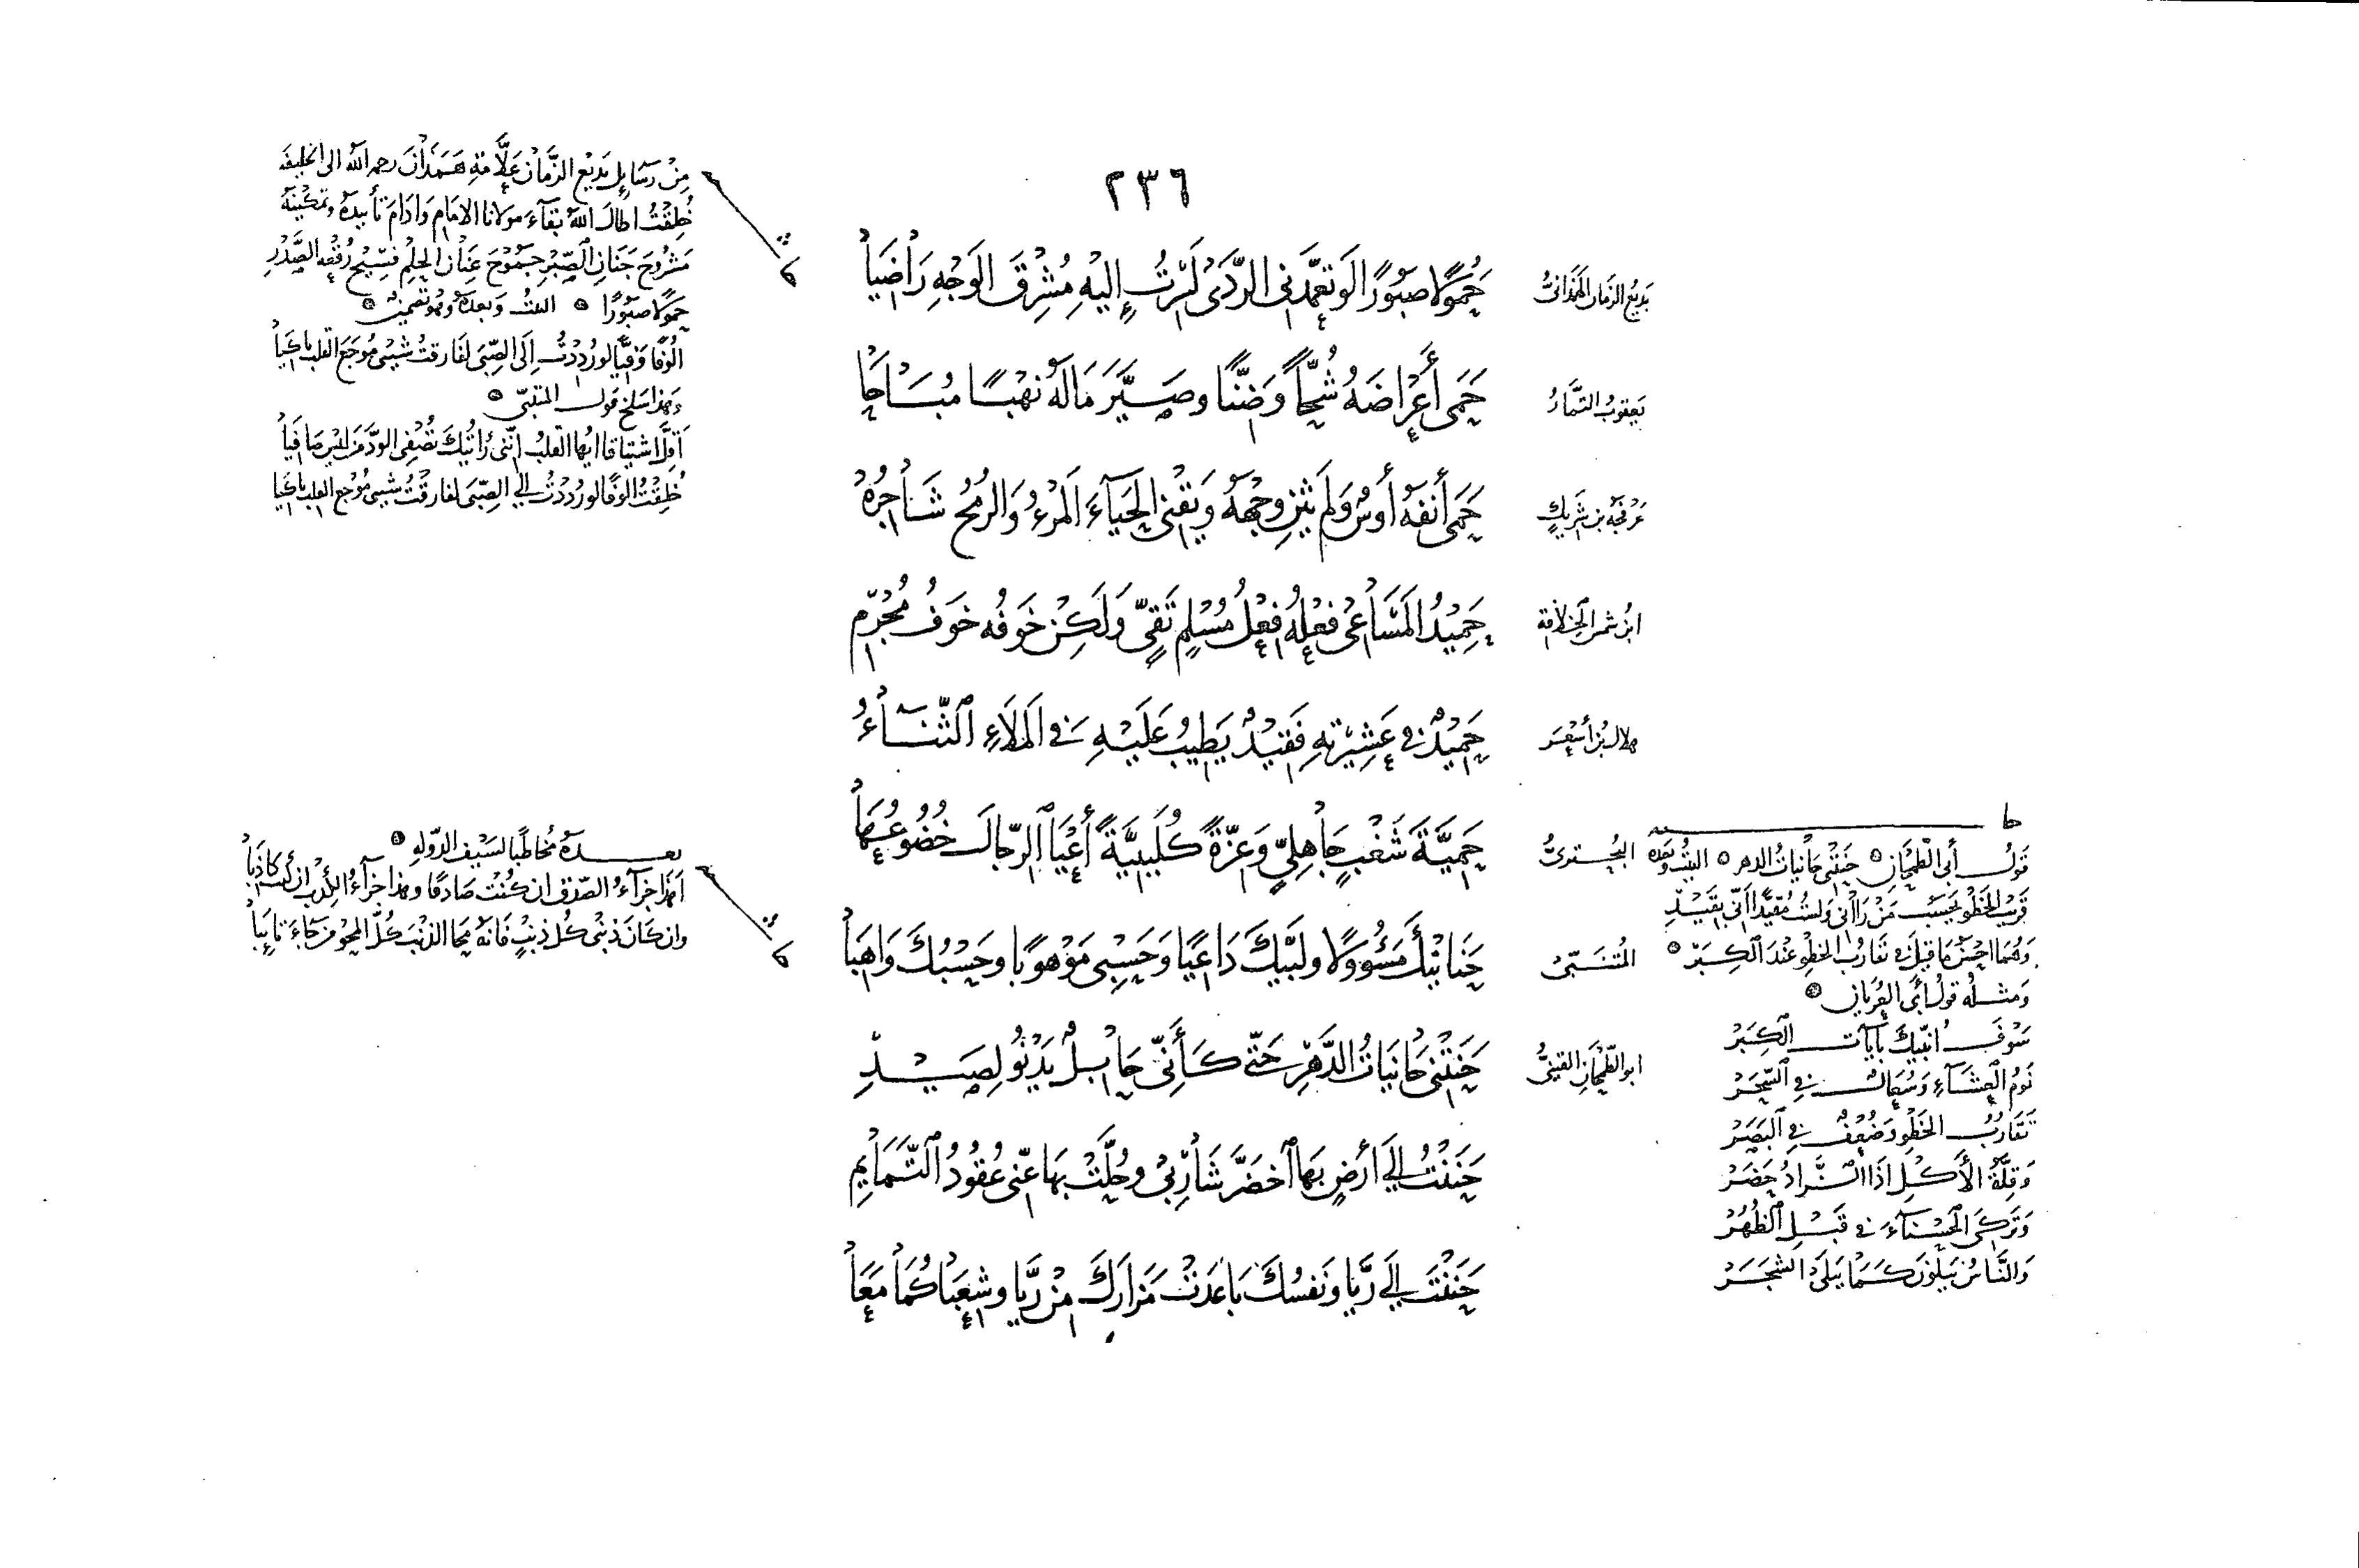 ٢٣٦
بَدِيعُ الزَّمَانِ الهَمَذَانِيُّ
حَمُولًا صَبُورًا لَوْ تَعَمَّدَنِي الرَّدَى لَسِرْتُ إِلَيْهِ مُشْرِقَ الوَجْهِ رَاضِيَا
يَعقوبُ التَّمَّارُ
حَمَى أَعْرَاضَهُ شُحًّا وَضَنًّا وصَيَّرَ مَالَهُ نَهْبًا مُبَاحَا
عَرفَجَةُ بن شَرِيكٍ
حَمَى أَنفَهُ أَوسٌ وَلَم يَثنِ وَجْهَهُ وَيَقْنِي الحَيَآءَ المَرْءُ وَالرُمحُ شَاجِرُهْ
ابنُ شمس الخِلَافة
حَمِيْدُ المَسَاعِي فِعْلُهُ فِعْلُ مُسْلِمٍ تَقِيٍّ وَلَكِنْ خَوفُه خَوفُ مُجْرِمِ
هلال بنُ أسْعَر
حَمِيْدٌ في عَشِيْرتِهِ فَقِيْدٌ يَطِيبُ عَلَيْهِ في المَلَاءِ الثَّنَاءُ
البُحتريُّ
حَمِيَّةَ شَغْبٍ جَاهِليٍّ وَعِزَّةً كُلَيْبِيَّةً أَعْيَا الرّجالَ خُضُوعُهَا
المُتنَبّي
حَنَانَيْكَ مَسْؤُولًا ولَبَّيْكَ دَاعِيًا وَحَسْبِي مَوْهوبًا وحَسْبُكَ وَاهِبَا
ابو الطَّمحَانِ القينيُّ
حَنَتْنِي حَانيَاتُ الدَّهْرِ حَتَّى كَأَنِّي خَاتِلٌ يَدْنُو لِصَيْدِ
حَنَنْتُ إلَى أَرْضٍ بِهَا اخضَرَّ شَارِبِي وحُلَّتْ بِهَا عنِّي عُقُودُ التَّمَايمِ
حَنَنْتَ إلَى رَيَّا وَنَفسُكَ بَاعَدَتْ مَزَارَكَ مِنْ رَيَّا وشِعْبَاكُمَا مَعَا
مِنْ رسَايِلِ بَدِيْع الزَّمَان عَلَّامَةِ هَمَذَانَ رحمه الله الى الخليفَه
خُلِقْتُ اطَالَ اللهُ بَقآءَ مَولانا الامَام وَادَامَ تأييدَهُ وتمكينَهُ
مَشرُوحَ جَنَانِ الصَّبْرِ جَمُوحَ عِنَان الحِلمِ فَسِيْح رُقْعَةِ الصَّدْرِ
حَمولًا صَبُورًا البيتُ وَبعدَهُ وهُو تضمينٌ
الُوفًا وَفِيًّا لو رُدِدْتُ إلَى الصِّبَى لفَارقتُ شَيْبِي مُوجَعَ القلبِ باكيَا
وَهذا سَلخ قول المتنبّي
أَقِلَّ اشتيَاقا ايُّها القلبُ انَّني رَأَيتُكَ تُصْفِي الودَّ مَن ليسَ صَافيَا
خُلِقْتُ الُوفًا لو رُدِدْتُ إلَى الصِّبَى لفارقْتُ شيبي مُوْجعَ القلب باكيَا
بعدَهُ مُخاطبًا لسَيْف الدَّولهِ
أهَذَا جَزآءُ الصِّدق ان كُنْتُ صَادقًا وهذا جزآءُ الكِذْب ان كُنْتُ كاذِبَا
وان كَانَ ذَنْبِي كُلَ ذنبٍ فَانهُ مَحَا الذنْبَ كُلَّ المحْوِ مَنْ جَآءَ تايبَا
قَولُ أبي الطَّمحَانِ حَنَتْنِي حَانيَاتُ الدهرِ البيتُ وبَعدَهُ
قَرِيبُ الخَطْوِ يَحسِبُ مَنْ رَآنِي وَلستُ مُقيَّدًا أنِّي بقَيْدِ
وَهُمَا احْسَنُ مَا قِيلَ في تَقارُبِ الخطْوِ عندَ الكِبَرِ
وَمثلُه قولُ أبي العُريَانِ
سَوْفَ انَبِّيكَ بآيَاتِ الكِبَرْ
نَومُ العِشَآءِ وَسُعَالٌ في السَّحَرْ
تَقَارُبُ الخَطْوِ وَضُعْفٌ في البَصَرْ
وَقِلَّةُ الأَكلِ اذَا الزَّادُ حَضَرْ
وَتَركِي الحَسْنَآءَ في قَبْلِ الطُّهُرْ
وَالنَّاسُ يَبْلَوْنَ كَمَا يَبلَى الشَجَرْ